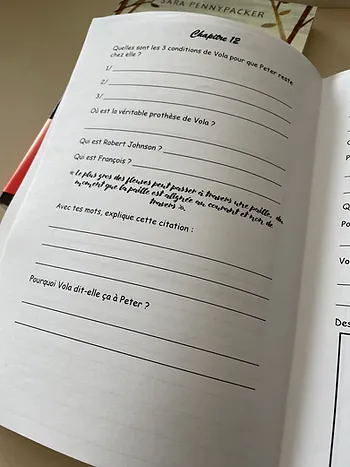 SARA PENNYPACKER
Chapitre 12
Quelles sont les 3 conditions de Vola pour que Peter reste
chez elle ?
1/
2/
3/
Où est la véritable prothèse de Vola ?
Qui est Robert Johnson ?
Qui est François ?
« Le plus gros des fleuves peut passer à travers une paille, du
moment que la paille est alignée au courant et non de
travers ».
Avec tes mots, explique cette citation :
Pourquoi Vola dit-elle ça à Peter ?
Qu
Po
Vo
Des